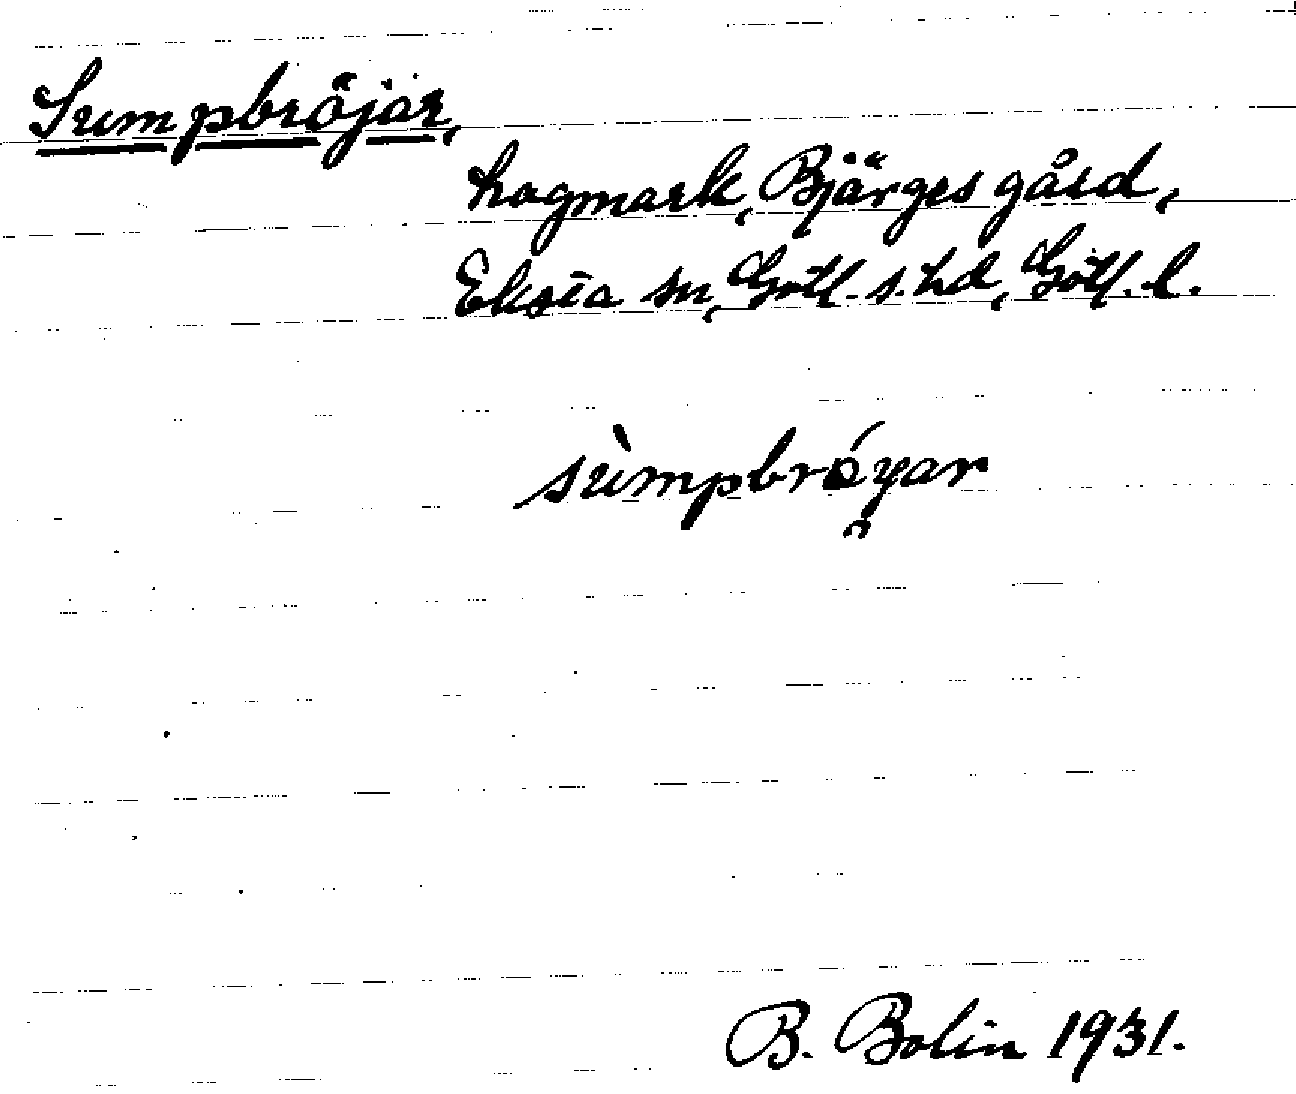 Sumpbröjar,
hagmark, Bjärges gård,
Eksta sn, Gotl. s. hd, Gotl. l.
sùmpbrǿyar
B. Bolin 1931.